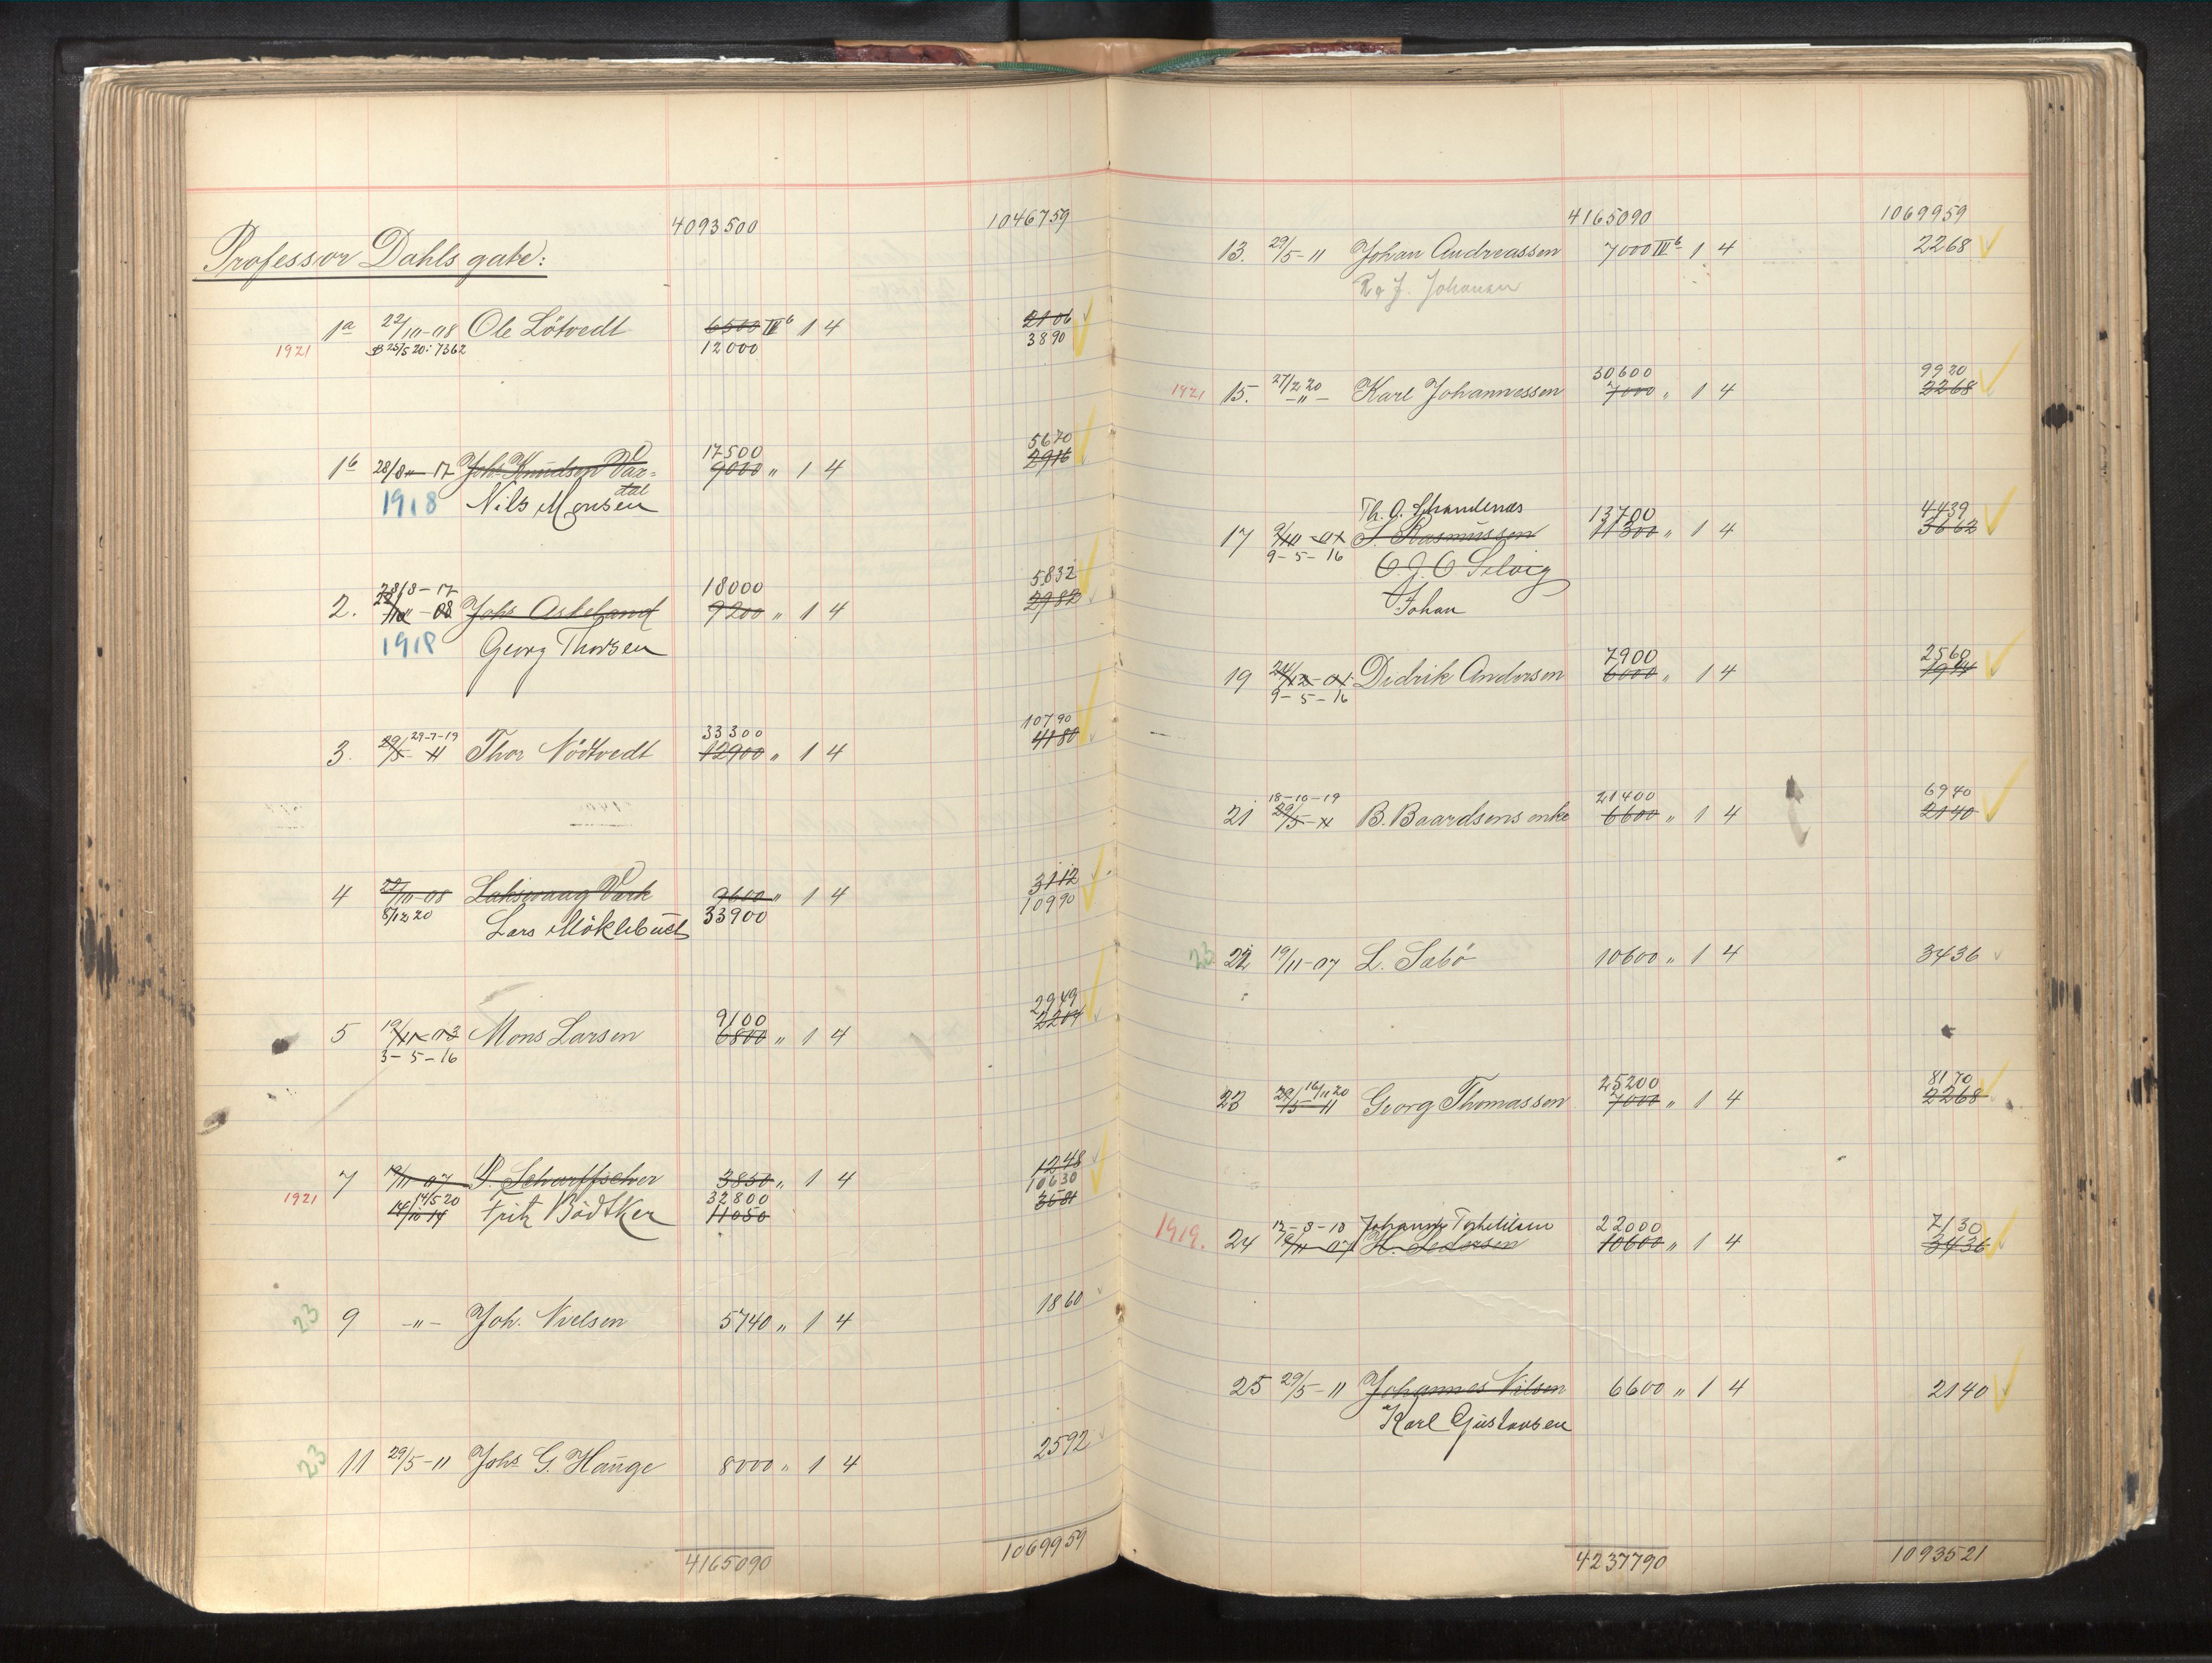 4093500 1046759
Professor Dahls gate:
1a 22/10-08 Ole Lötvedt 6500 IV b 1 4 2106
1921 B 25/5 20: 7362 12000 3890
17500 5670
1b 28/8 17 Johs Knudsen Vaar= 9000 " 1 4 2916
dal
1918 Nils Monsen
28/8-17 18000 5832
2. 22/10-08 Johs Askeland 9200 " 1 4 2982
1918 Georg Thorsen
29-7-19 33300 10790
3. 29/5-11 Thor Nödtvedt 12900 " 1 4 4180
4 22/10-08 Laksevaag Værk 9600 " 1 4 3112
8/12 20 Lars Möklebust 33900 10990
9100 2949
5 19/11-03 Mons Larsen 6800 " 1 4 2204
3-5-16
7 19/11 07 P. Scharffscher 3850 " 1 4 1248
1921 14/5 20 32800 10630
14/10 14 Fritz Bödtker 11050 3581
23 9 -"- Joh. Nielsen 5740 " 1 4 1860
23 11 29/5-11 Johs G. Hauge 8000 " 1 4 2592
4165090 1069959
4165090 1069959
13. 29/5-11 Johan Andreassen 7000 IV b 1 4 2268
R. J. Johansen
27/2 20 30600 9920
1921 15. -"- Karl Johannessen 7000 " 1 4 2268
Th. O. 13700 4439
17 2/10-01 S. Rasmussen 11300 " 1 4 3662
9-5-16 O. J. O. Selvig
Johan
7900 2560
19 24/12-01 Didrik Andersen 6000 " 1 4 1944
9-5-16
18-10-19 21400 6940
21 29/5-11 B. Baardsens enke 6600 " 1 4 2140
23 22 19/11-07 L. Sæbö 10600 " 1 4 3436
16/11 20 25200 8170
23 29/5 11 Georg Thomassen 7000 " 1 4 2268
12-8-18 22000 7130
1919. 24 19/11 07 H. Pedersen 10600 " 1 4 3436
25 29/5-11 Johannes Nilsen 6600 " 1 4 2140
Karl Gustavsen
4237790 1093521